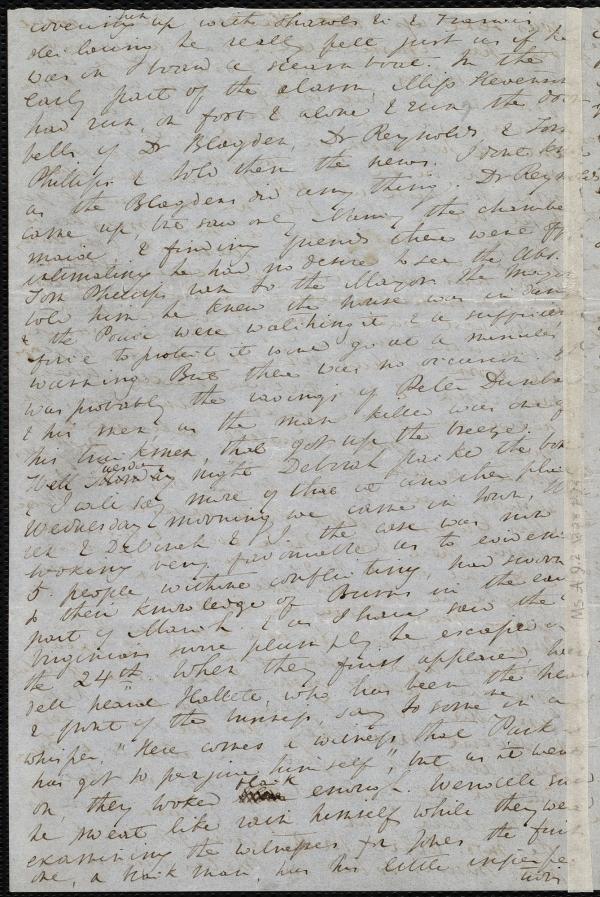 covering up with shawls &c & Francis
declaring he really felt just as if he
was on board a steam boat. In the
early part of the alarm, Miss Stevenson
had run, on foot & alone & rung the door
bells of Dr Blagden, Dr Reynolds, & Tom
Phillips & told them the news. I dont kn
as the Blagdens did any thing. Dr Reyn
came up, he saw only Nancy the chamber
maid & finding friends there went off
intimating he had no desire to see the Abs.
Tom Phillips ran to the Mayor. The Mayor
told him he knew the house was in dan
& the Police were watching it & a sufficient
force to protect it would go at a minute's
warning But there was no occasion.
was probably the ravings of Peter Dunba
& his men as the man killed was one of
his truckmen, that got up the breeze.
Well Tuesday night Deborah packed the box
& I will say more of that at another place
Wednesday morning we came in town,
& Deborah & I. the case was not
looking very favourable as to evidence
5 people, without conflicting, had sworn
to their knowledge of Burns in the early
part of March & as I have said the
Virginians swore plumply he escaped on
the 24th. When they first appeared, Wen
dell heard Hallett, who has been the head
& front of the business, say to some one in a
whisper, "Here comes a witness that Park
has got to perjure himself", but as it went
on, they looked blank enough. Wendell said
he sweat like rain himself while they were
examining the witnesses for Jones the first
one, a black man, was his little imperfe
tions
Ms.A.9.2